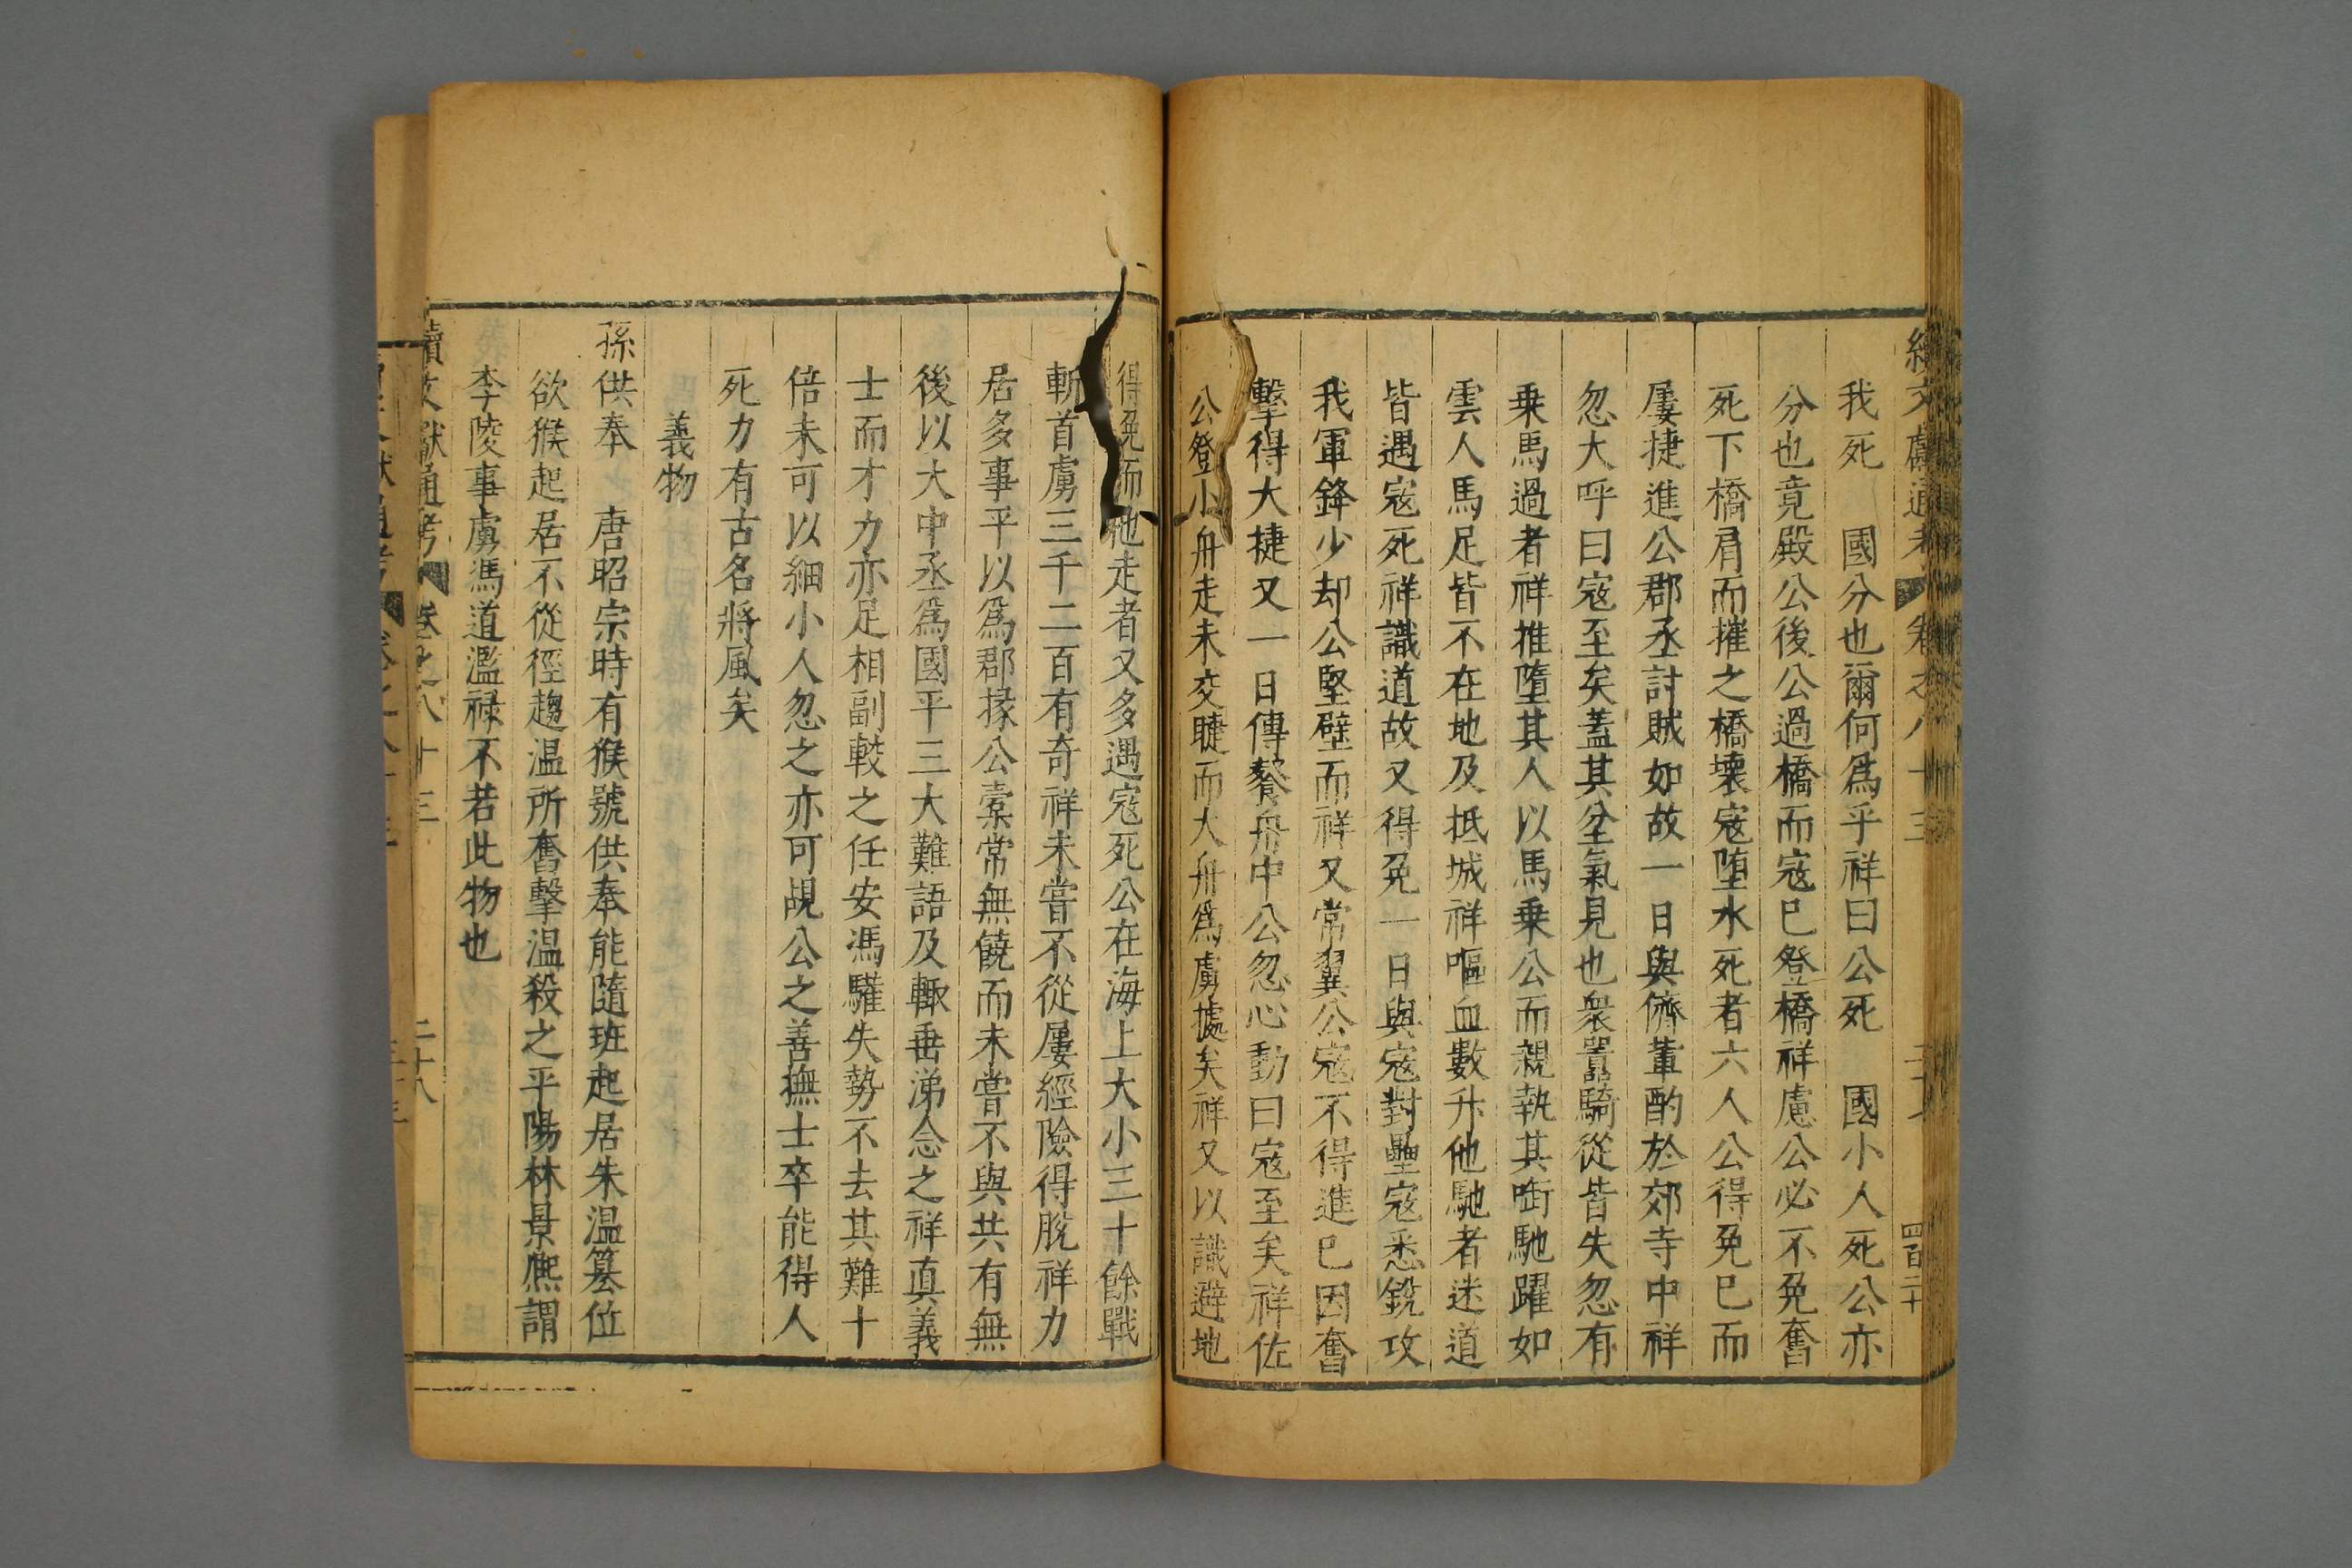 我死　國分也爾何爲乎祥曰公死　國小人死公亦
分也竟殿公後公過橋而寇巳登橋祥慮公必不免奮
死下橋肩而摧之橋壞寇堕水死者六人公得免巳而
屢捷進公郡丞討賊如故一日與儕軰酌於郊寺中祥
忽大呼曰寇至矣蓋其坌氣見也衆嚚騎從皆失忽有
乗馬過者祥推墮其人以馬乗公而親執其啣馳躍如
雲人馬足皆不在地及抵城祥嘔血數升他馳者迷道
皆遇寇死祥識道故又得免一日與寇對壘寇悉銳攻
我軍鋒少却公堅壁而祥又常翼公寇不得進巳因奮
擊得大捷又一日傳餐舟中公忽心動曰寇至矣祥佐
公登小舟走未交睫而大舟爲虜據矣祥又以識避地
得免而他走者又多遇寇死公在海上大小三十餘戰
斬首虜三千二百有奇祥未嘗不從屢經險得脫祥力
居多事平以爲郡掾公橐常無饒而未嘗不與共有無
後以大中丞爲國平三大難語及輙垂涕念之祥真義
士而才力亦足相副較之任安馮驩失勢不去其難十
倍未可以細小人忽之亦可覘公之善撫士卒能得人
死力有古名將風矣
義物
孫供奉　唐昭宗時有猴號供奉能隨班起居朱溫簒位
欲猴起居不從徑趨温所奮擊温殺之平陽林景熈謂
李陵事虜馮道濫禄不若此物也
續文獻通考　卷之八十三　二十八